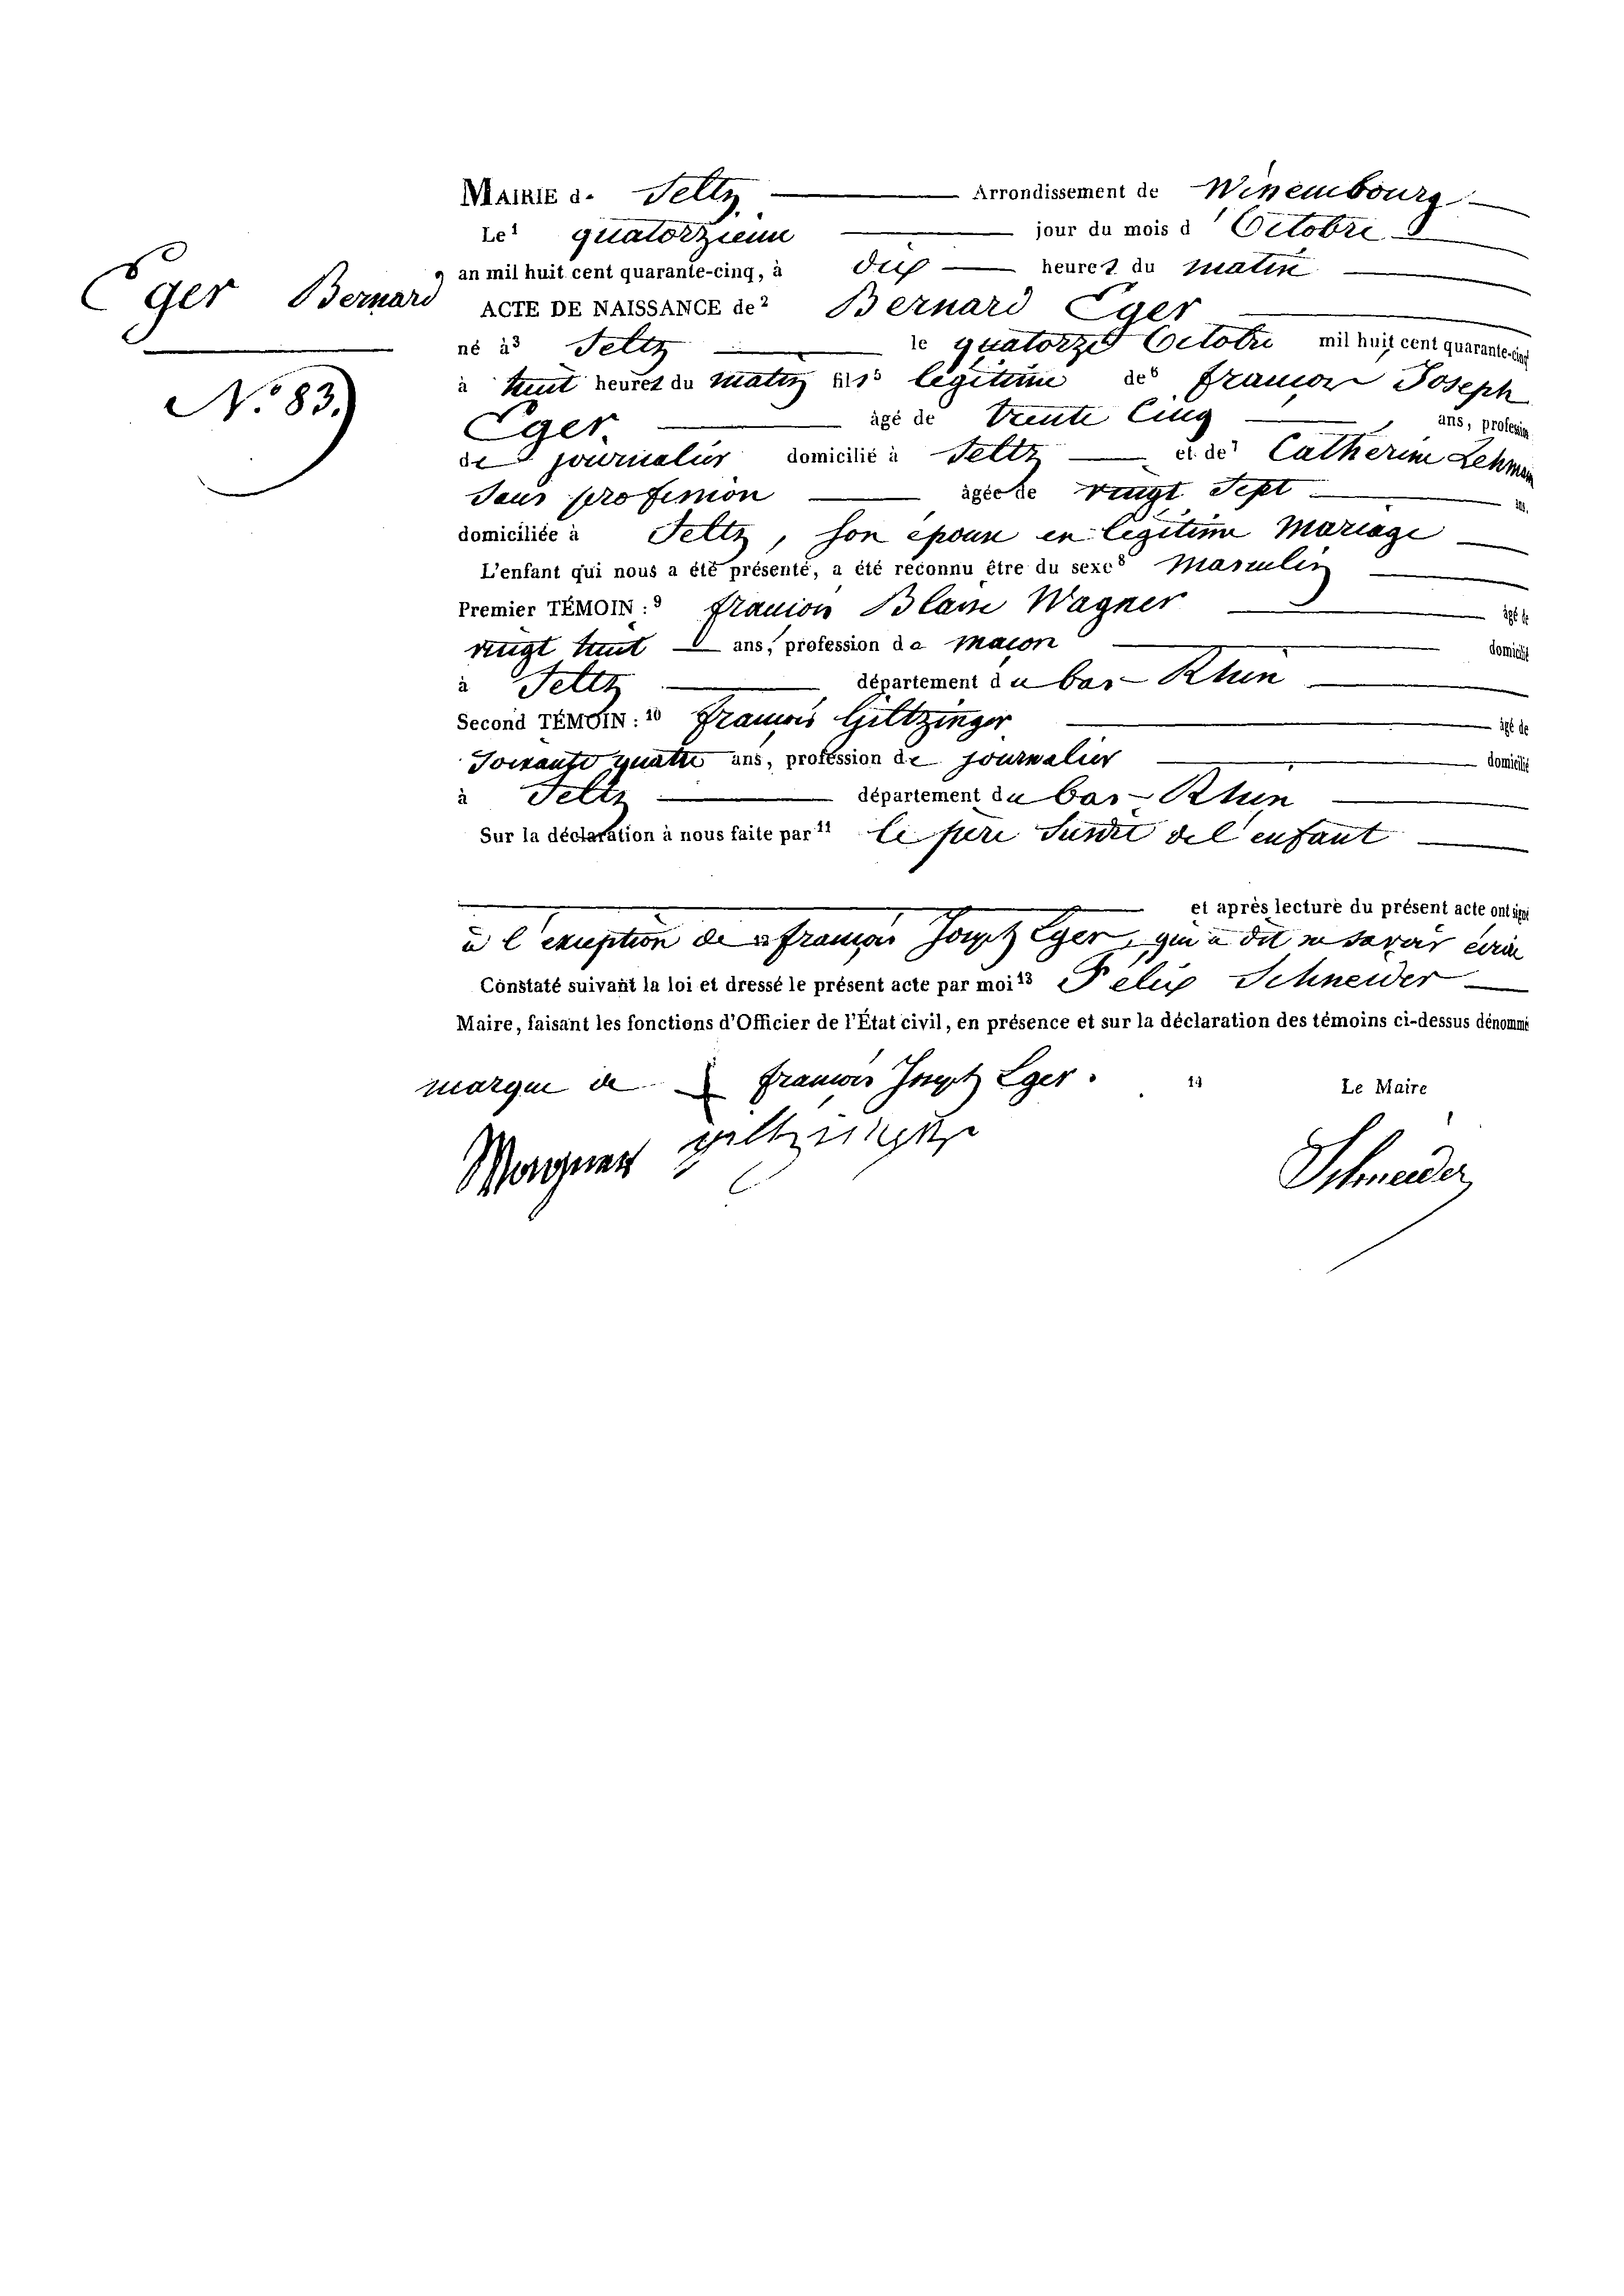 Mairie de Seltz, Arrondissement de Wissembourg
Le¹ quatorzième jour du mois d'Octobre
an mil huit cent quarante-cinq, à dix heures du matin
Eger Bernard
ACTE DE NAISSANCE de² Bernard Eger
né à³ Seltz le quatorze Octobre mil huit cent quarante-cinq
N.° 83.
à huit heures du matin fils⁵ légitime de⁶ françois Joseph
Eger. âgé de trente Cinq ans, profession
de journalier domicilié à Seltz et de⁷ Catherine Lehmann
Sans profession âgée de vingt Sept ans,
domiciliée à Seltz, son épouse en légitime Mariage
L'enfant qui nous a été présenté, a été reconnu être du sexe⁸ Masculin
Premier TÉMOIN :⁹ françois Blaise Wagner âgé de
vingt huit ans, profession de macon domicilié
à Seltz département du bas-Rhin
Second TÉMOIN :¹⁰ françois Giltzinger âgé de
Soixante quatre ans, profession de journalier domicilié
à Seltz département du bas-Rhin
Sur la déclaration à nous faite par¹¹ le père Susdit de l'enfant
et après lecture du présent acte ont signé
à l'exception de françois Joseph Eger, qui a dit ne savoir écrire
Constaté suivant la loi et dressé le présent acte par moi¹³ Félix Schneider
Maire, faisant les fonctions d'Officier de l'État civil, en présence et sur la déclaration des témoins ci-dessus dénommé
marque de françois Joseph Eger. 14 Le Maire
Wagner giltzinger Schneider